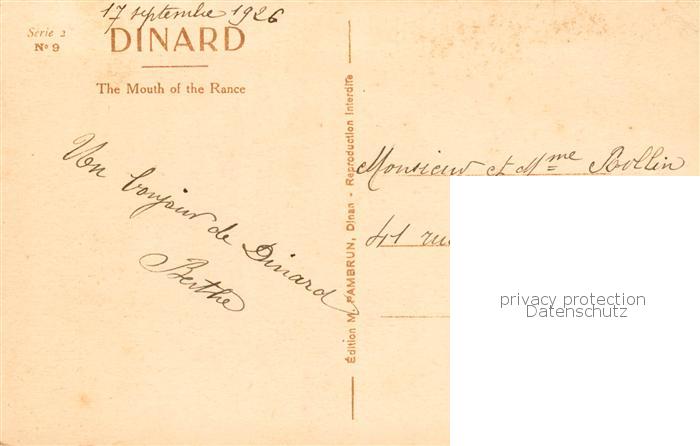 17 septembre 1926
Série 2
Nº 9
DINARD
The Mouth of the Rance
Un bonjour de Dinard
Berthe
Édition M. PAMBRUN, Dinan - Reproduction Interdite
Monsieur et Mme Rollin
41 rue
privacy protection
Datenschutz